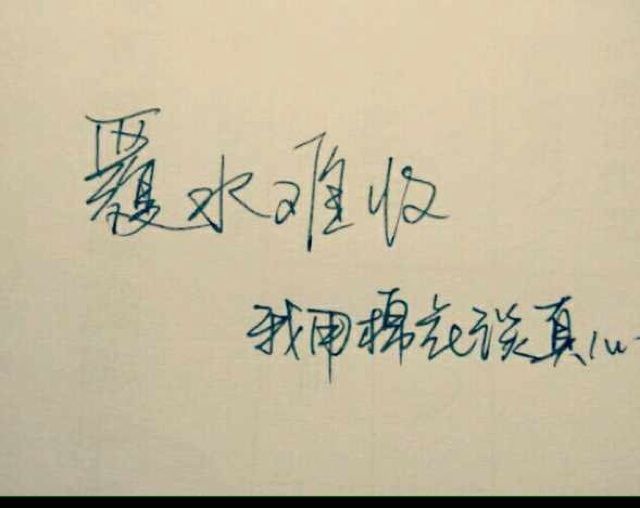 覆水难收
我用棉花谈真心